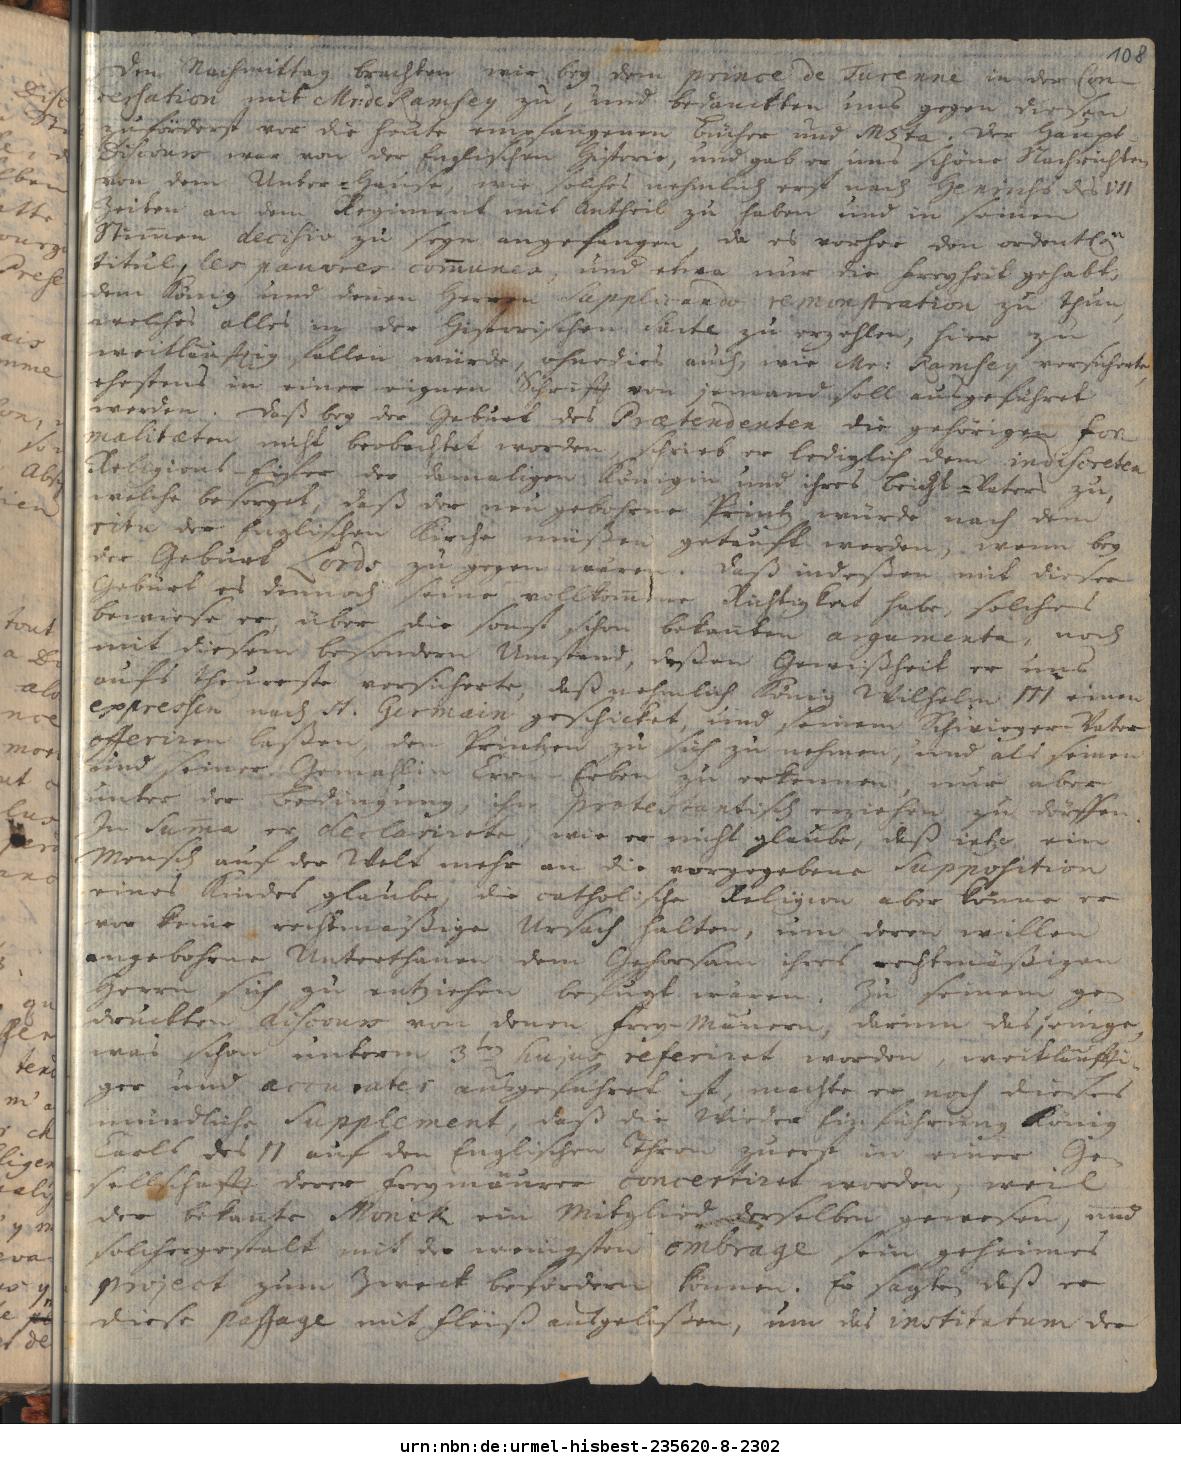 108
Den Nachmittag brachten wir bey dem prince de Turenne in der Con-
versation mit Mr. de Ramsey zu, und bedanckten uns gegen diesen
zuförderst vor die heute empfangenen Bücher und MSta. Der Haupt
Discours war von der Englischen Historie, und gab er uns schöne Nachrichten
von dem Unter-Hause, wie solches nehmlich erst nach Henrichs des VIII
Zeiten an dem Regiment mit Antheil zu haben und in seinen
Stimmen decisiv zu seyn angefangen, da es vorher den ordentl.
titul, les pauvres com̄unes, und etwa nur die Freyheit gehabt,
dem König und denen Herren Supplicando remonstration zu thun,
welches alles in der Historischen Suite zu erzehlen, hier zu
weitläufftig fallen würde, ohnedies auch, wie Mr: Ramsey versicherte,
ehestens in einer eignen Schrifft von jemand soll ausgeführet
werden. Daß bey der Geburt des Prætendenten die gehörigen For
malitæten nicht beobachtet worden, schrieb er lediglich dem indiscreten
Religions-Eifer der damaligen Königin und ihres Beicht-Vaters zu,
welche besorget, daß der neugebohrne Printz würde nach dem
ritu der Englischen Kirche müßen getauft werden, wenn bey
der Geburt Lords zu gegen wären. Daß indeßen mit dieser
Geburt es dennoch seine vollkom̄ne Richtigkeit habe, solches
bewiese er, über die sonst schon bekan̄ten argumenta, noch
mit diesem besondern Umstand, deßen Gewißheit er uns
aufs theureste versicherte, daß nehmlich König Wilhelm III einen
expressen nach St. Germain geschicket, und seinem Schwieger-Vater
offeriren laßen, den Printzen zu sich zu nehmen, und als seinen
und seiner Gemahlin Cron-Erben zu erkennen, nur aber
unter der Bedingung, ihn protestantisch erziehen zu dörffen.
In Sum̄a er declarirte, wie er nicht glaube, daß ietzo ein
Mensch auf der Welt mehr an die vorgegebene Supposition
eines Kindes glaube, die catholische Religion aber könne er
vor keine rechtmäßige Ursach halten, um deren willen
angebohrne Unterthanen dem Gehorsam ihres rechtmäßigen
Herrn sich zu entziehen befugt wären. Zu seinem ge
druckten discours von denen Frey-Mäurern, darinn dasjenige,
was schon unterm 3ten hujus referiret worden, weitläuffti-
ger und accurater ausgeführet ist, machte er noch dieses
mündliche Supplement, daß die Wieder Einführung König
Carls des II auf den Englischen Thron zuerst in einer Ge
sellschafft derer Freymäurer concertiret worden, weil
der bekan̄te Monck ein Mitglied derselben gewesen, und
solchergestalt mit der wenigsten ombrage sein geheimes
project zum Zweck befördern können. Er sagte, daß er
diese passage mit Fleiß ausgelaßen, um das institutum der